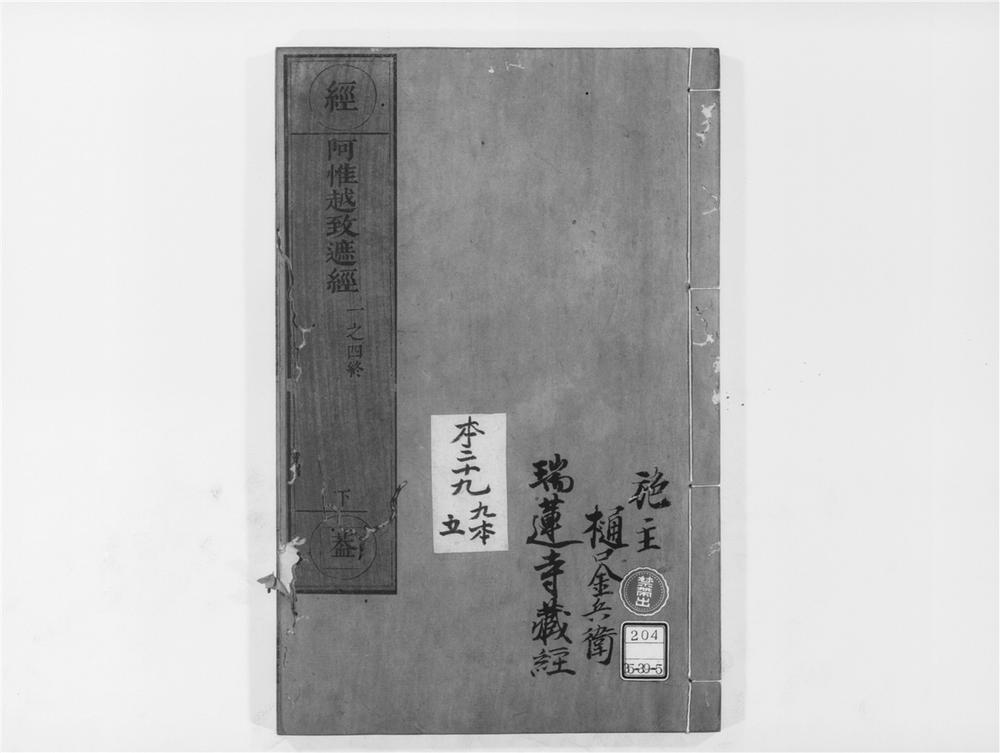 施主
樋口金兵衛
瑞蓮寺蔵経
禁帶出
204
35-39-5
本二十九
九本
五
經
阿惟越致遮經
一之四終
下
蓋